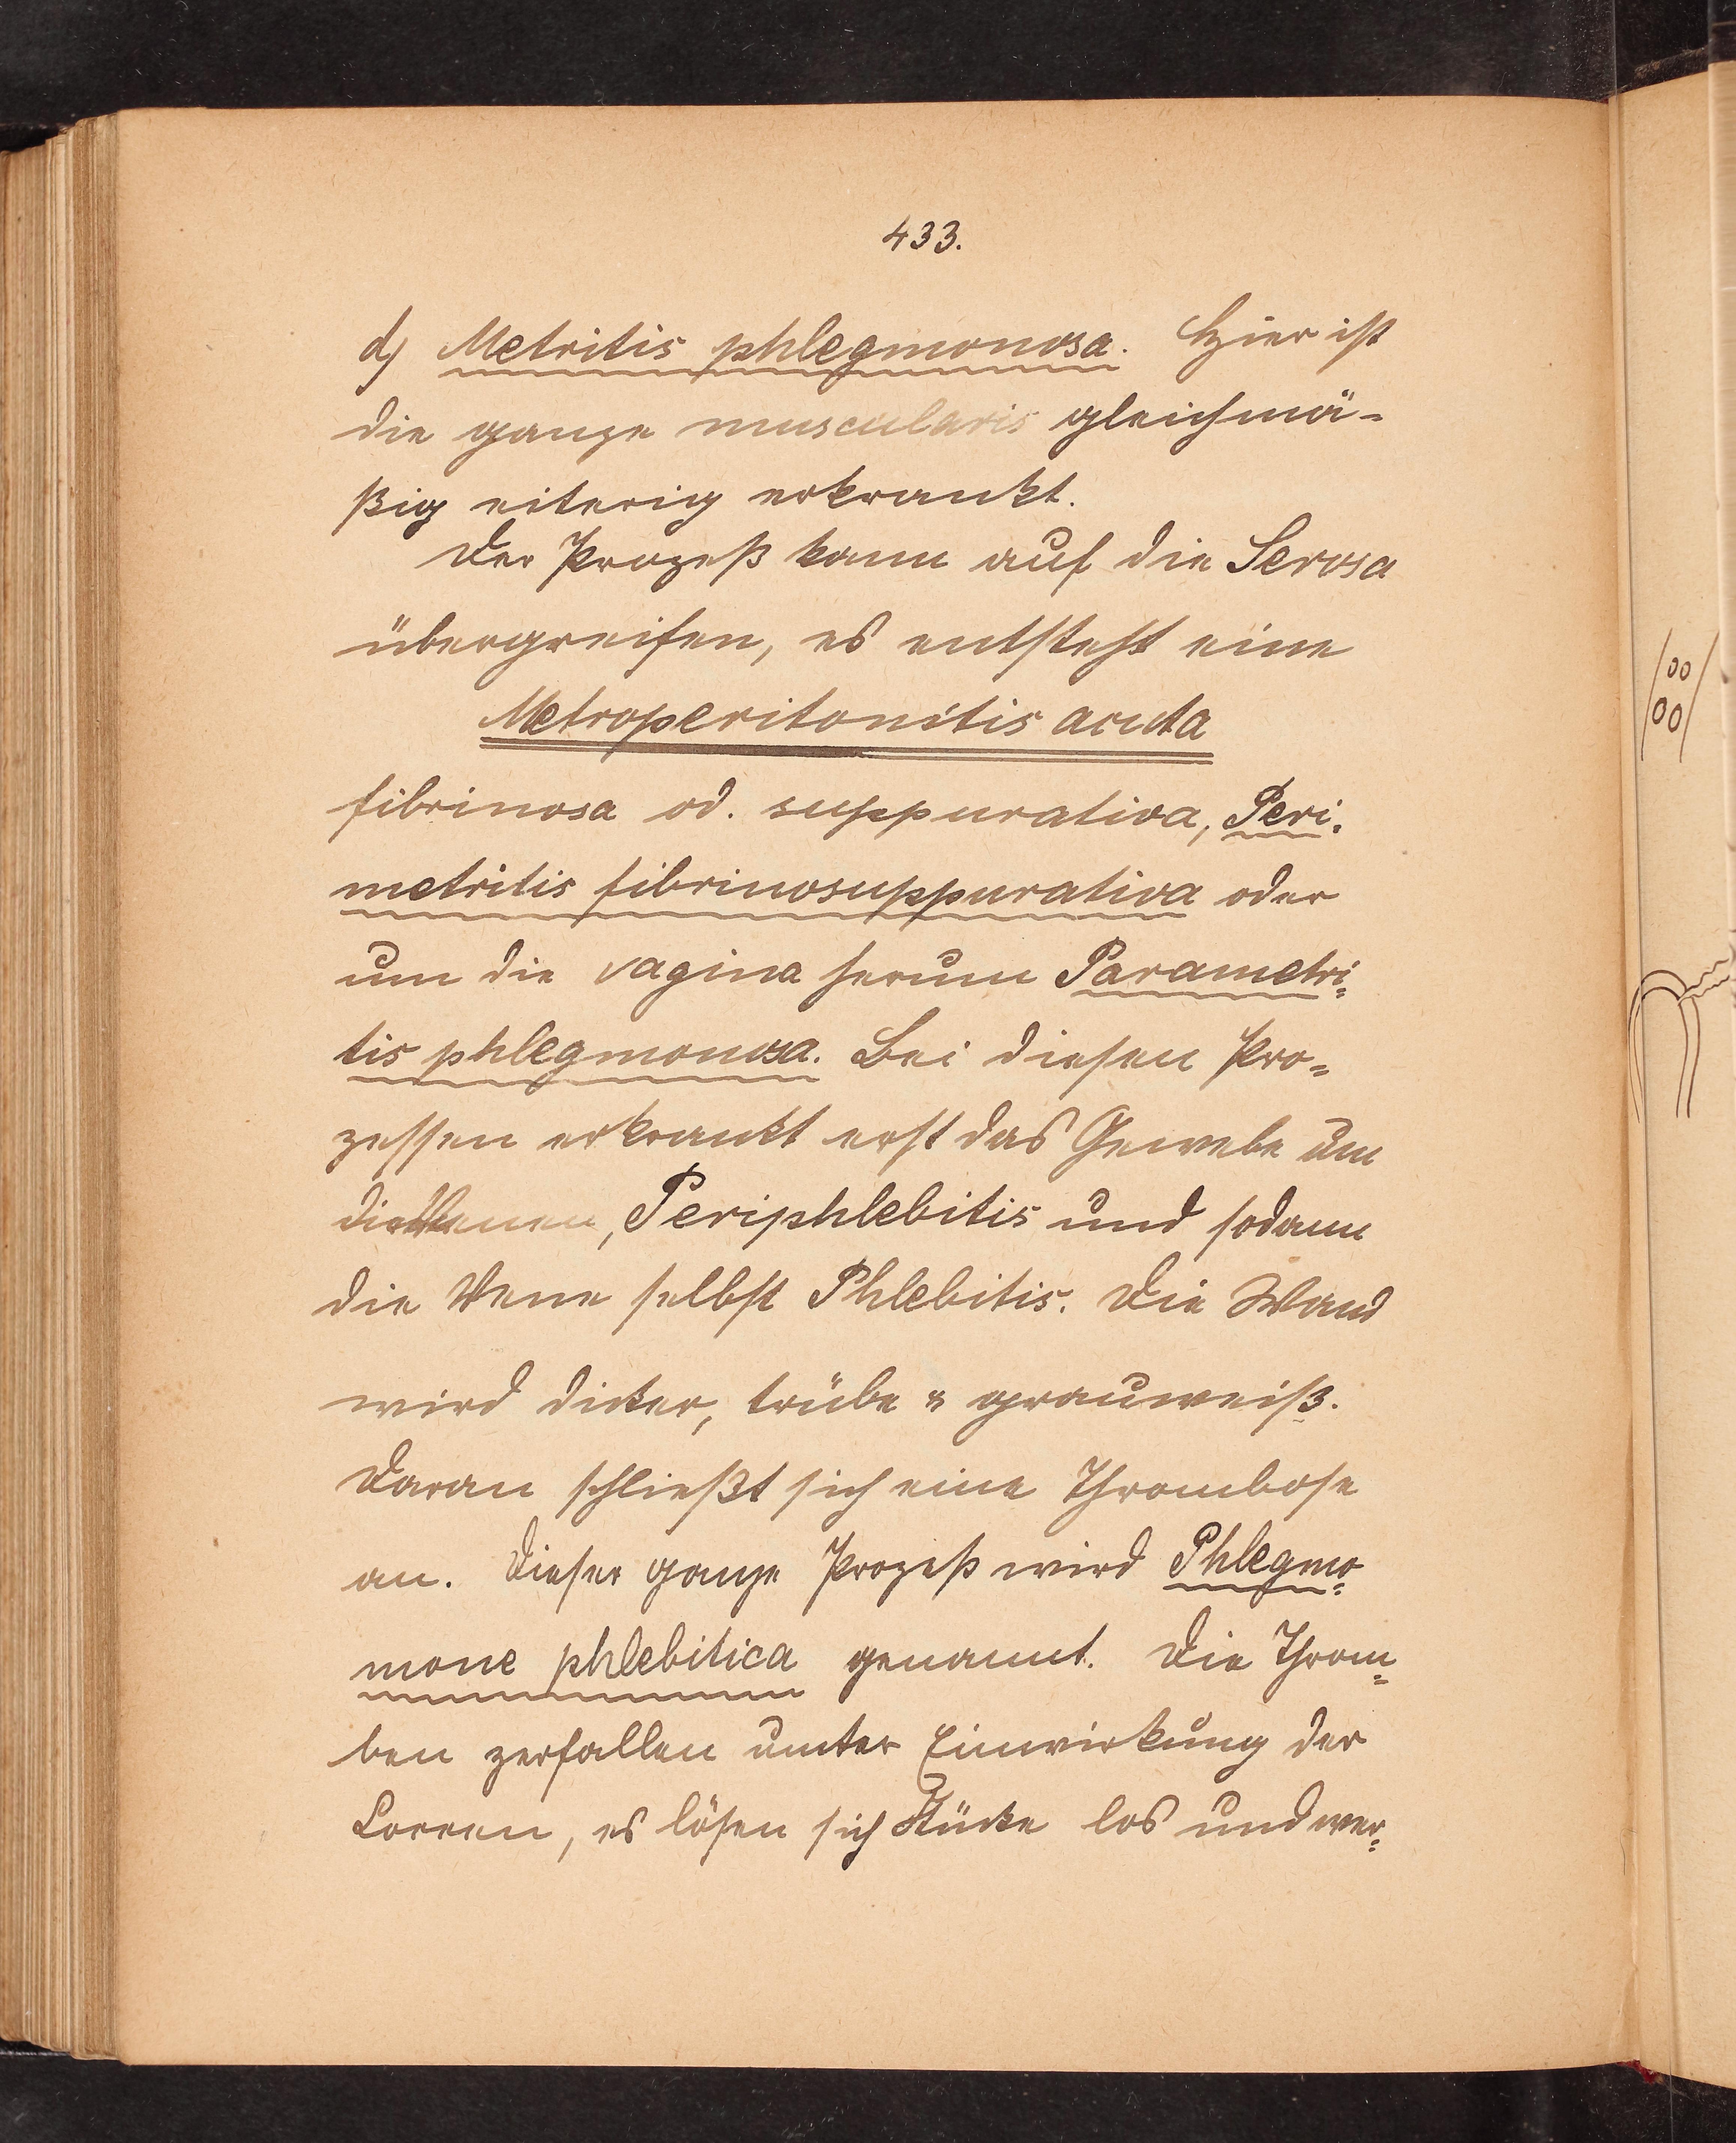 433.
d) Metritis phlegmonosa. Hier ist
die ganze muscularis gleichmä-
ßig eiterig erkrankt.
Der Prozeß kann auf die Serosa
übergreifen, es entsteht eine
Metroperitonitis acuta
fibrinosa od. suppurativa, Peri-
metritis fibrinosuppurativa oder
um die vagina herum Parametri-
tis phlegmonosa. Bei diesen Pro-
zessen erkrankt erst das Gewebe um
die Venen, Periphlebitis und sodann
die Vene selbst Phlebitis. Die Wand
wird dicker, trübe u grauweiß.
Daran schließt sich eine Thrombose
an. Dieser ganze Prozeß wird Phlegmo-
mone phlebitica genannt. Die Throm-
ben zerfallen unter Einwirkung der
Coccen, es lösen sich Stücke los und wer-